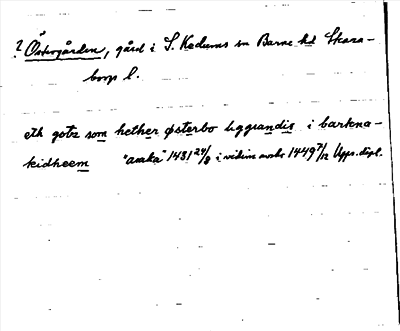 ? Östergården, gård i S. Kedums sn Barne hd Skara-
borgs l.
eth gotz som hether østerbo liggandis i barkna-
kidheem "aaska" 1481 24/8 i vidim avskr 1449 7/12 Upps. dipl.